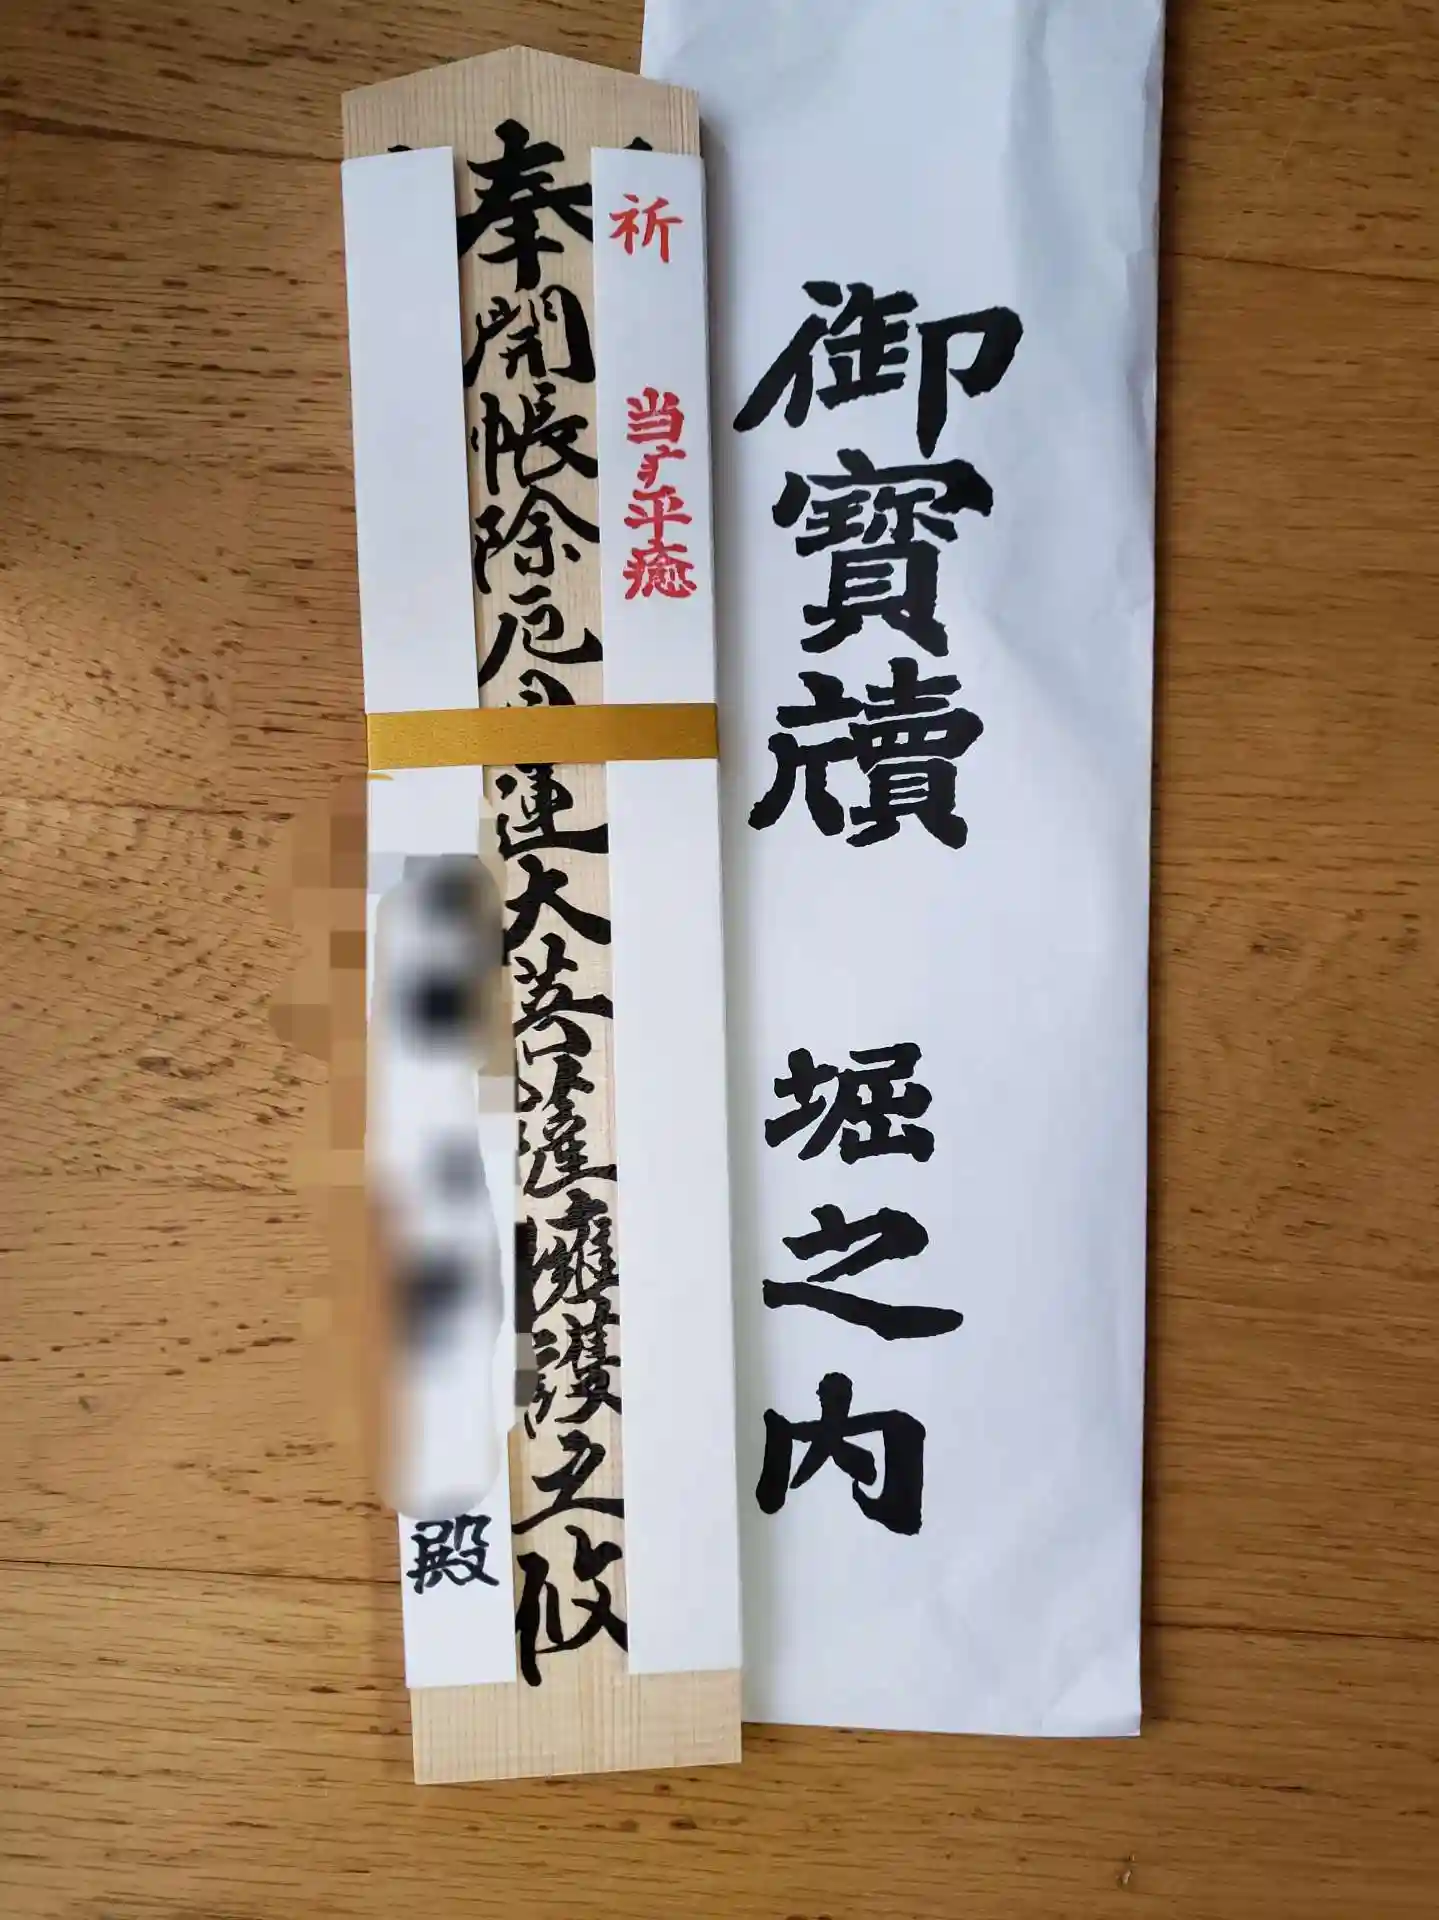 御寳牘　堀之内
祈　当疒平癒
奉開帳除厄開運大菩薩擁護之攸
殿